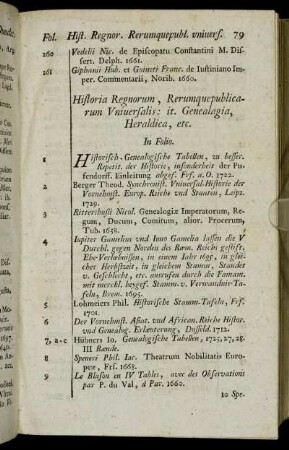 Fol. Hist. Regnor. Rerumquepubl. vniuers. 79
260 Vedelii Nic. de Episcopatu Constantini M. Dis-
sert. Delph. 1661.
261 Giphanii Hub. et Guineti Franc. de Iustiniano Im-
per. Commentarii, Norib. 1660.
Historia Regnorum, Rerumquepublica-
rum Vniuersalis: it. Genealogia,
Heraldica, etc.
In Folio.
1 Historisch-Genealogische Tabellen, zu besser.
Repetit. der Historie, insonderheit der Pu-
fendorff. Einleitung abgef. Frf. a. O. 1722.
2 Berger Theod. Synchronist. Vniuersal-Historie der
Vornehmst. Europ. Reiche vnd Staaten, Leipz.
1729.
3 Rittershusii Nicol. Genealogiæ Imperatorum, Re-
gum, Ducum, Comitum, alior. Procerum,
Tub. 1658.
4 Iupiter Gamelius vnd Iuno Gamelia lassen die V
Durchl. gegen Norden des Röm. Reichs gestift.
Ehe-Verbübnissen, in einem Jahr 1695, in glei-
cher Herbstzeit, in gleichem Stamm, Standes
v. Geschlecht, etc. ausrufen durch die Famam,
mit merckl. beygef. Stamm- v. Verwandnis-Ta-
feln, Brem. 1695.
5 Lohmeiers Phil. Historische Stamm-Tafeln, Frf.
1701.
6 Der Vornehmst. Asiat. vnd African. Reiche Histor.
vnd Genealog. Erläuterung, Dusseld. 1712.
7, a-c Hübners Io. Genealogische Tabellen, 1725, 27, 28.
III Bände.
8 Speneri Phil. Iac. Theatrum Nobilitatis Euro-
peæ, Frf. 1668.
9 Le Blason en IV Tables, avec des Observations
par P. du Val, à Par. 1660.
10 Spe-